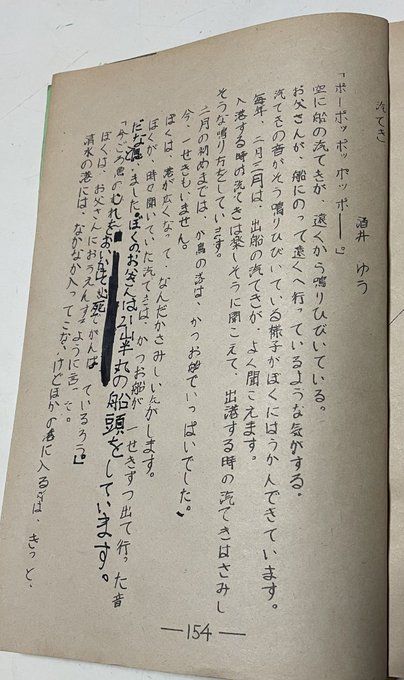 汽てき
酒井 ゆう
「ボーボッボッボッボーー。」
空に船の汽てきが、遠くから鳴りひびいている。
お父さんが、船にのって遠くへ行っているような気がする。
汽てきの音がそう鳴りひびいている様子がぼくにはうかんできています。
毎年、二月三月は、出船の汽てきが、よく聞こえます。
入港する時の汽てきは楽しそうに聞こえて、出港する時の汽てきはさみし
そうな鳴り方をしています。
二月の初めまでは、か島の港は、かつお船でいっぱいでした。
今、一せきもいません。
ぼくは、港が広くなって、なんだかさみしい気がします。
ぼくが、時々聞いていた汽てきは、かつお船が、一せきずつ出て行った音
だなと思いました。ぼくのお父さんは、21山半丸の船頭をしています。
「今ごろ魚のむれをおいかけて必死でがんばっているろう。」
ぼくは、お父さんにおうえんするように言った。
清水の港には、なかなか入ってこないけどほかの港に入る時は、きっと、
—154—